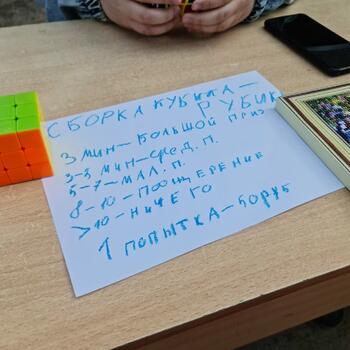 СБОРКА КУБИКА-
РУБИК
3 МИН-БОЛЬШОЙ ПРИЗ
3-5 МИН-СРЕД. П.
5-7-МАЛ. П.
8-10-ПООЩЕРЕНИЕ
>10-НИЧЕГО
1 ПОПЫТКА-50РУБ